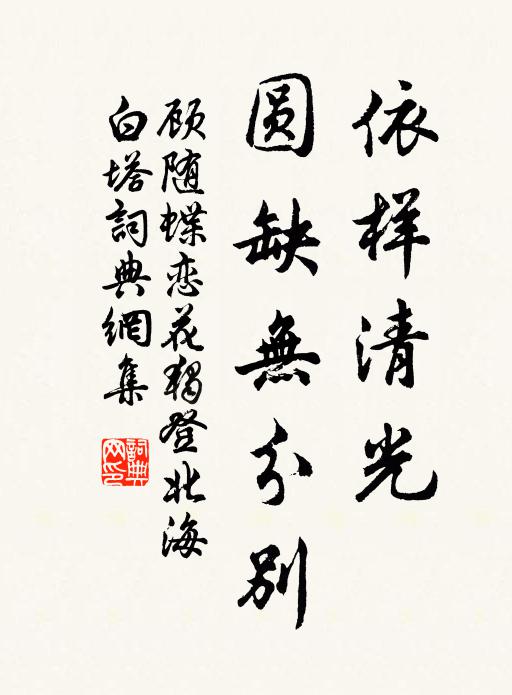 依样清光
圆缺無分别
顾随蝶恋花獨登北海
白塔詞典網集
詞典网印